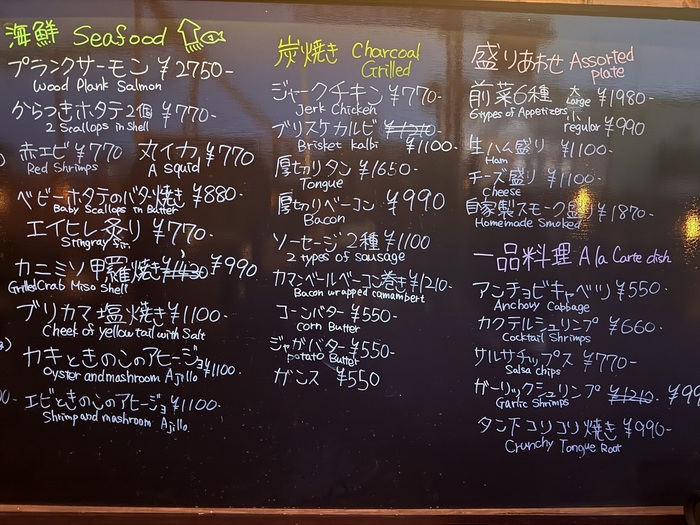 海鮮 Seafood
プランクサーモン ¥2750-
Wood Plank Salmon
からつきホタテ2個 ¥770-
2 Scallops in Shell
赤エビ ¥770 丸イカ ¥770
Red Shrimps A squid
ベビーホタテのバター焼き ¥880-
Baby Scallops in Butter
エイヒレ炙り ¥770-
Stingray fin.
カニミソ甲羅焼き ¥1430 ¥990
Grilled Crab Miso Shell
ブリカマ塩焼き ¥1100-
Cheek of yellow tail with Salt
カキときのこのアヒージョ ¥1100-
Oyster and mashroom Ajillo
エビときのこのアヒージョ ¥1100-
Shrimp and mashroom Ajillo.
炭焼き Charcoal
Grilled
ジャークチキン ¥770-
Jerk Chicken
ブリスケカルビ ¥1210-
Brisket kalbi ¥1100-
厚切りタン ¥1650-
Tongue
厚切りベーコン ¥990
Bacon
ソーセージ2種 ¥1100
2 types of sausage
カマンベールベーコン巻き ¥1210-
Bacon wrapped camambert
コーンバター ¥550-
corn Butter
ジャガバター ¥550-
potato Butter
ガンス ¥550
盛りあわせ Assorted
plate
前菜6種 大 Large ¥1980-
6types of Appetizers 小 regular ¥990
生ハム盛り ¥1100-
Ham
チーズ盛り ¥1100-
Cheese
自家製スモーク盛り ¥1870-
Homemade Smoked
一品料理 A la Carte dish
アンチョビキャベツ ¥550-
Anchovy Cabbage
カクテルシュリンプ ¥660-
Cocktail Shrimps
サルサチップス ¥770-
Salsa chips
ガーリックシュリンプ ¥1210- ¥99
Garlic Shrimps
タン下コリコリ焼き ¥990-
Crunchy Tongue Root